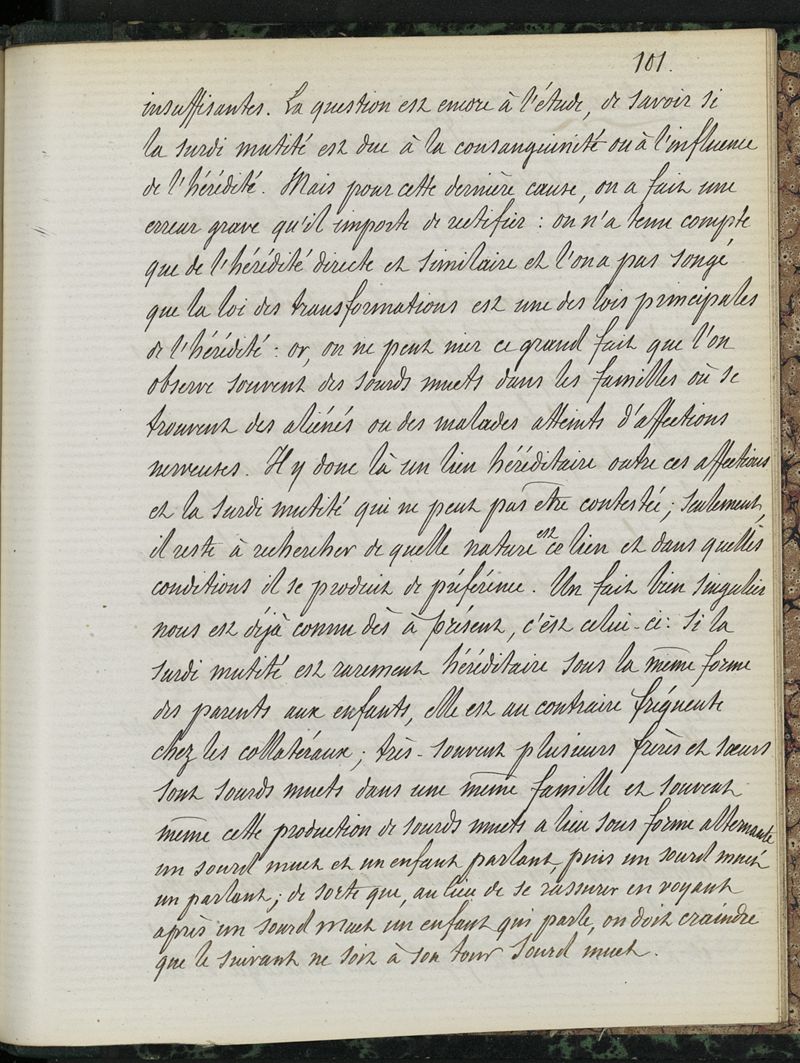 101.
insuffisantes. La question est encore à l'étude, de savoir si
la surdi mutité est due à la consanguinité ou à l'influence
de l'hérédité. Mais pour cette dernière cause, on a fait une
erreur grave qu'il importe de rectifier : on n'a tenu compte
que de l'hérédité directe et similaire et l'on a pas songé
que la loi des transformations est une des lois principales
de l'hérédité : or, on ne peut nier ce grand fait que l'on
observe souvent des sourds muets dans les familles où se
trouvent des aliénés ou des malades atteints d'affections
nerveuses. Il y donc là un lien héréditaire outre ces affections
et la surdi mutité qui ne peut pas être contestée ; seulement,
il reste à rechercher de quelle nature est ce lien et dans quelles
conditions il se produit de préférence. Un fait bien singulier
nous est déjà connu dès à présent, c'est celui-ci : si la
surdi mutité est rarement héréditaire sous la même forme
des parents aux enfants, elle est au contraire fréquente
chez les collatéraux ; très-souvent plusieurs frères et sœurs
sont sourds muets dans une même famille et souvent
même cette production de sourds muets a lieu sous forme alternante
un sourd muet et un enfant parlant, puis un sourd muet
un parlant ; de sorte que, au lieu de se rassurer en voyant
après un sourd muet un enfant qui parle, on doit craindre
que le suivant ne soit à son tour sourd muet.